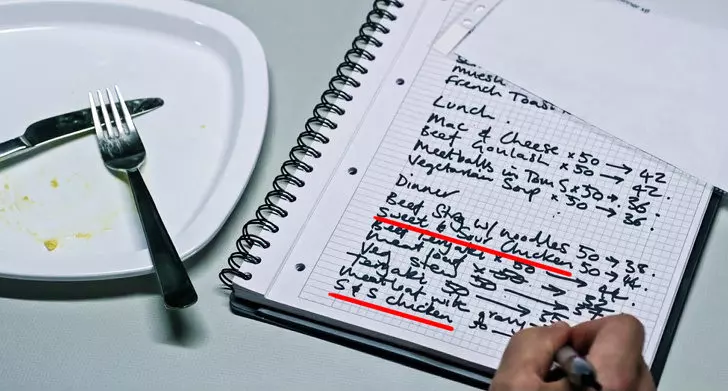 muesli
French Toast
Lunch
Mac & Cheese x 50 → 42
Beef Goulash x 50 → 42
Meatballs in Tom S x 50 → 36
Vegetarian Soup x 50 → 36
Dinner
Beef Strog w/ noodles 50 → 38
Sweet & Sour Chicken 50 → 44
Beef Teriyaki x 50
Meatloaf x 50
Veg Stew 50
Teriyaki 50
Meatloaf with gravy
S & S chicken 50